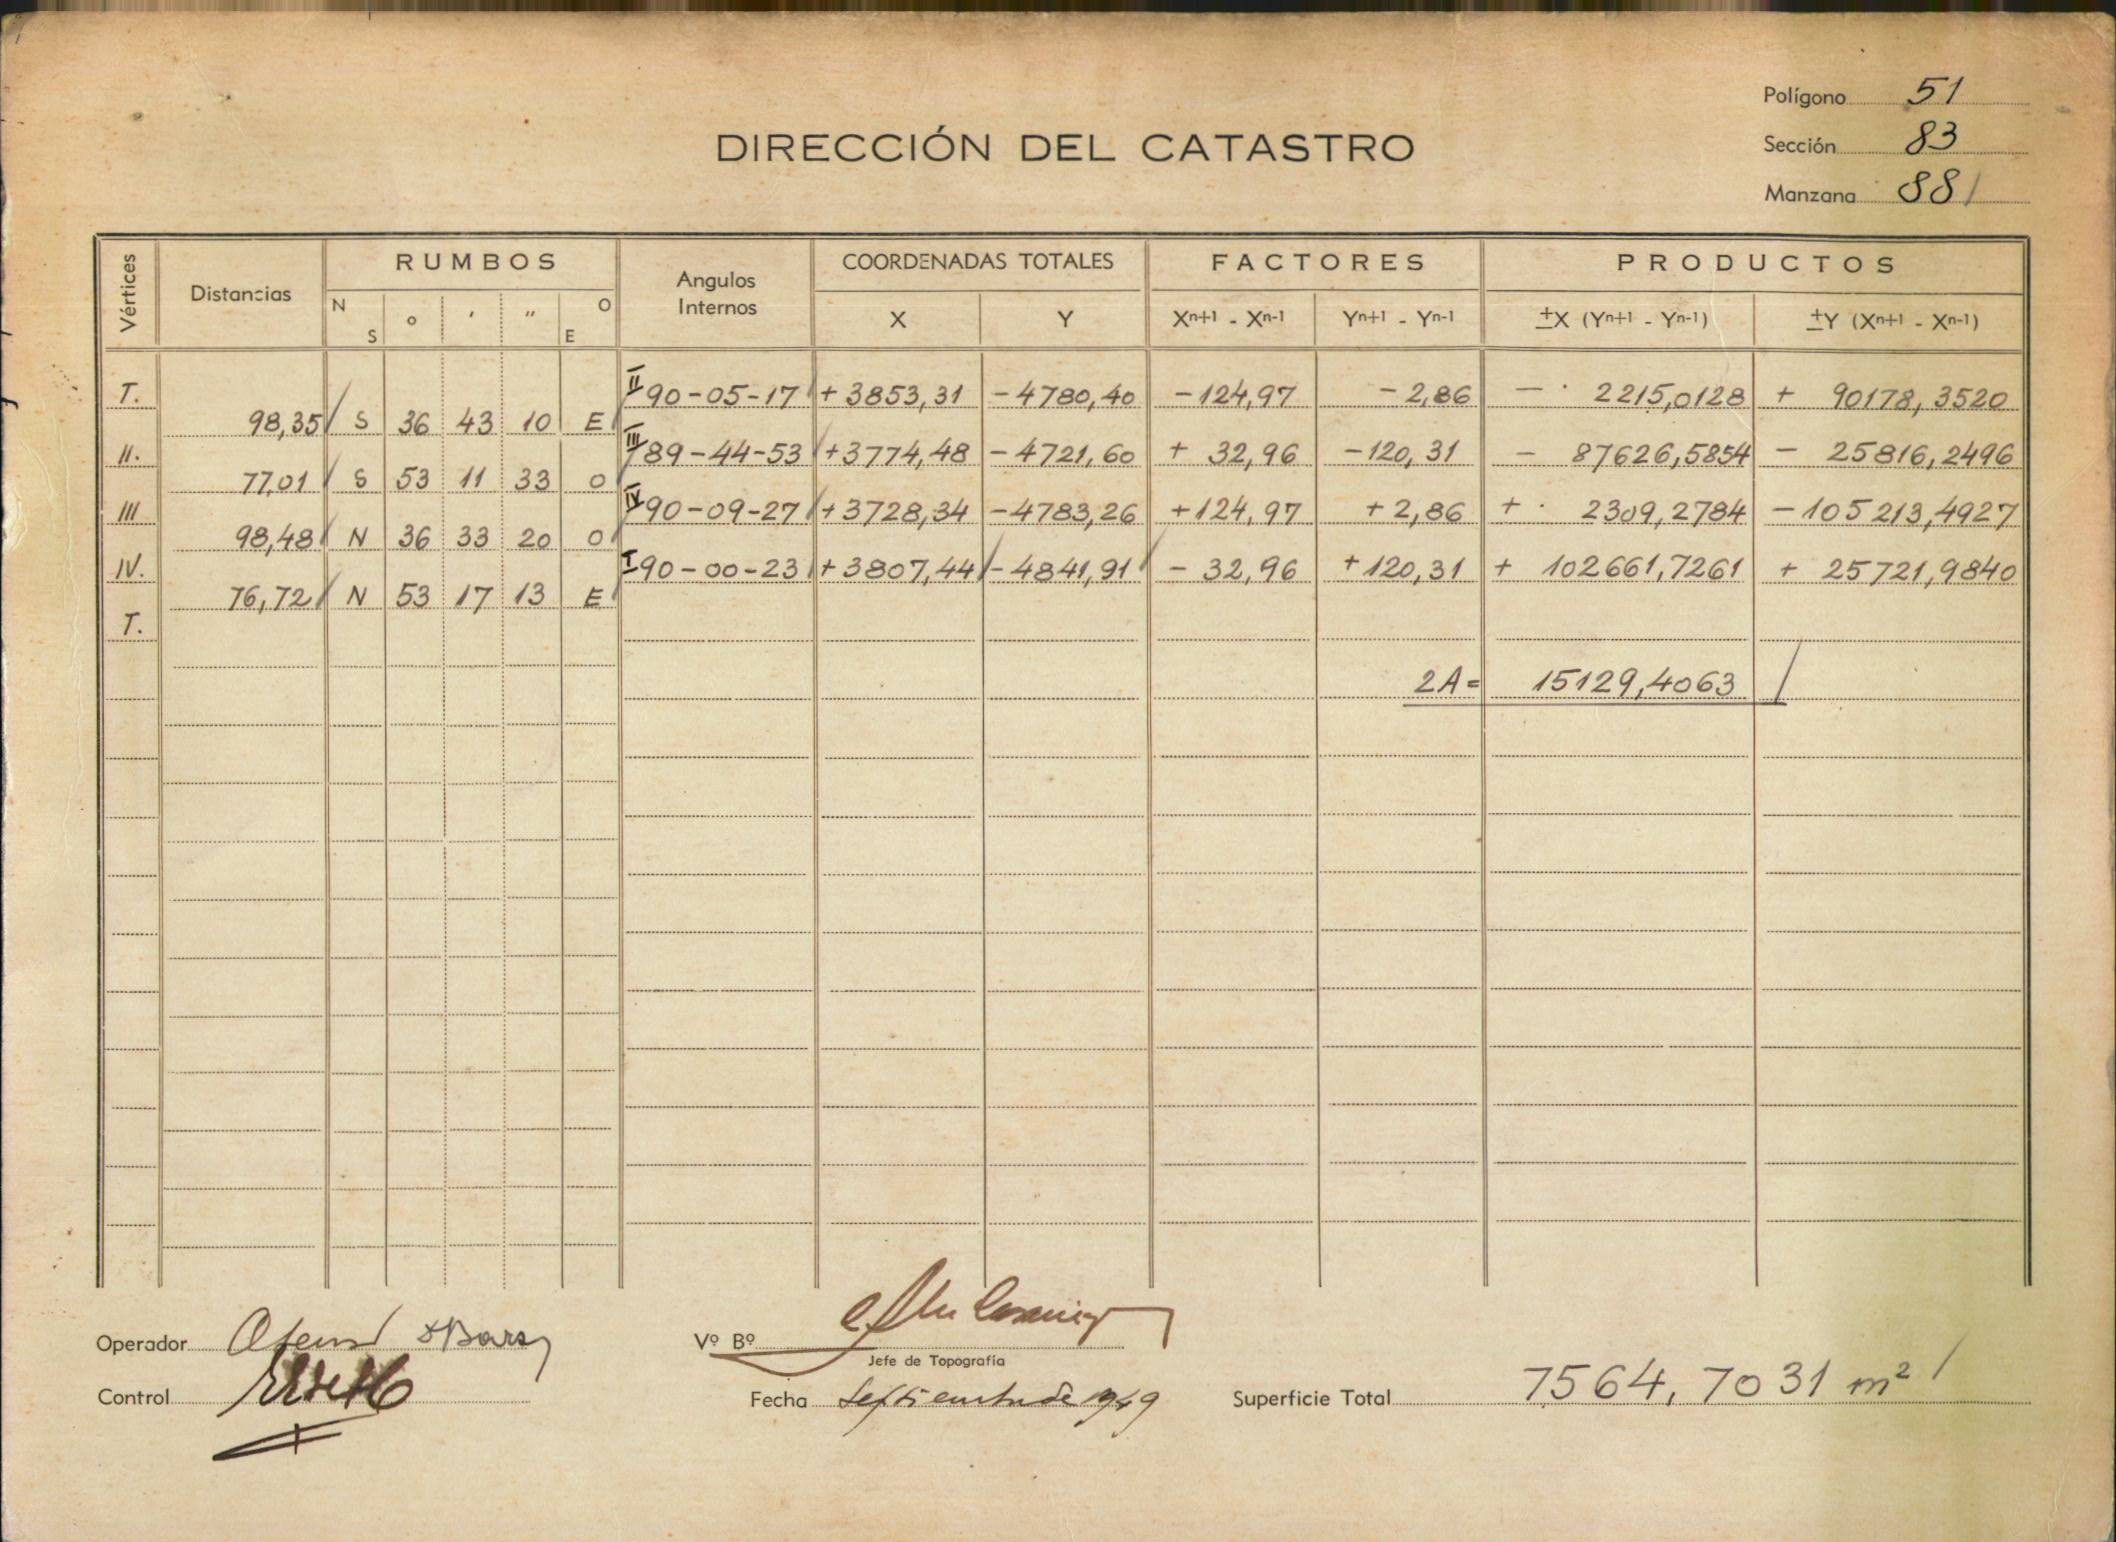 Polígono 51
DIRECCIÓN DEL CATASTRO
Sección 83
Manzana 88
Vértices Distancias RUMBOS Angulos Internos COORDENADAS TOTALES FACTORES PRODUCTOS
N S o ' " O E X Y Xn+1 - Xn-1 Yn+1 - Yn-1 ±X (Yn+1 - Yn-1) ±Y (Xn+1 - Xn-1)
I. II 90-05-17 +3853,31 -4780,40 -124,97 -2,86 - 2215,0128 + 90178,3520
98,35 S 36 43 10 E
II. III 89-44-53 +3774,48 -4721,60 + 32,96 -120,31 - 87626,5854 - 25816,2496
77,01 S 53 11 33 O
III IV 90-09-27 +3728,34 -4783,26 +124,97 +2,86 + 2309,2784 -105213,4927
98,48 N 36 33 20 O
IV. I 90-00-23 +3807,44 -4841,91 - 32,96 +120,31 + 102661,7261 + 25721,9840
76,72 N 53 17 13 E
I.
2A = 15129,4063
Operador
Vº Bº
Jefe de Topografía
Control
Fecha Septiembre de 1949 Superficie Total 7564,7031 m²